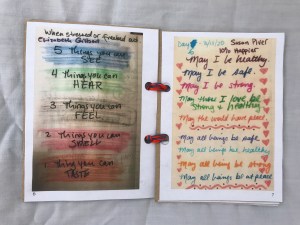 When stressed or freaked out
Elizabeth Gilbert
5 Things you can
SEE
4 Things you can
HEAR
3 Things you can
FEEL
2 Things you can
SMELL
1 Thing you can
TASTE
Day
Susan Piver
10% Happier
May I be healthy.
May I be safe.
May I be strong.
May there I love be,
strong & healing
May the world have peace
May all beings be safe
May all beings be healthy
May all beings be strong
May all beings be at peace